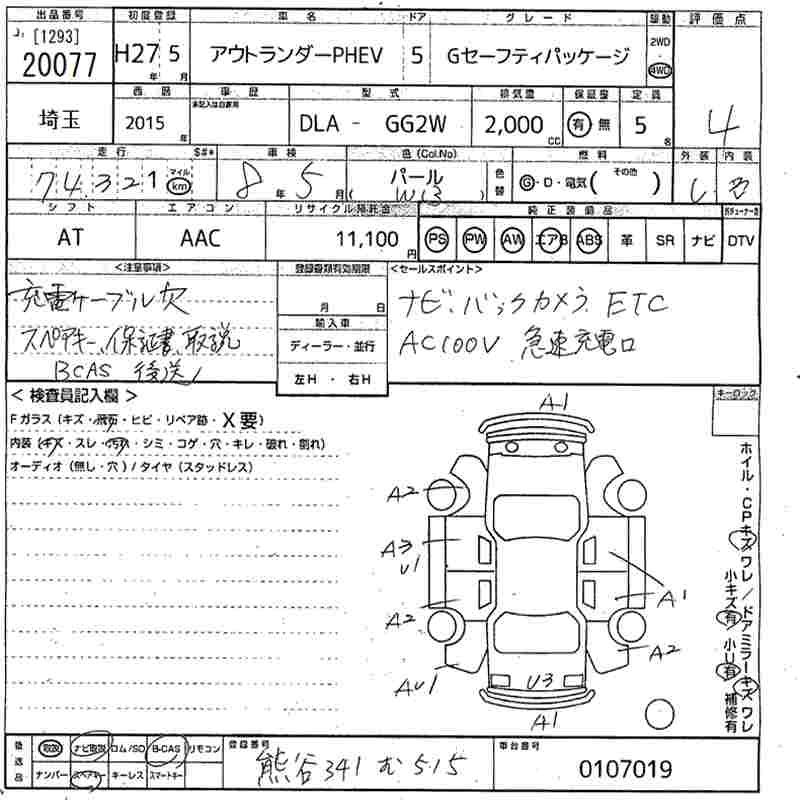 出品番号 初度登録 車名 ドア グレード 駆動 評価点
[1293]
20077 H27年 5月 アウトランダーPHEV 5 Gセーフティパッケージ 2WD・4WD 4
西暦 車歴 型式 排気量 保証書 定員
未記入は自家用
埼玉 2015年 DLA - GG2W 2,000CC 有・無 5名
走行 $#* 車検 色(Col.No) 色替 燃料 外装 内装
74321 マイル km 8年 5月 パール (W13) G・D・電気( その他 ) C B
シフト エアコン リサイクル預託金 純正装備品
AT AAC 11,100円 PS PW AW エアB ABS 革 SR ナビ DTV
<注意事項> 登録書類有効期限 <セールスポイント>
充電ケーブル欠 月 日 ナビ、バックカメラ ETC
スペアキー、保証書、取説 輸入車 AC100V 急速充電口
BCAS 後送 ディーラー・並行
左H・右H
< 検査員記入欄 > キーロック
Fガラス (キズ・飛石・ヒビ・リペア跡・X要)
内装 (キズ・スレ・汚れ・シミ・コゲ・穴・キレ・破れ・割れ)
オーディオ (無し・穴) / タイヤ (スタッドレス)
A1
A2
A3
U1
A1
A2
A2
AU1
U3
A1
ホイル・CPキズ ワレ / ドアミラーキズ ワレ
小キズ有 / 小U有 補修有
後送品 取説 ナビ取説 ロム/SD B-CAS リモコン 登録番号 車台番号
ナンバー スペアキー キーレス スマートキー 熊谷 341 む 515 0107019